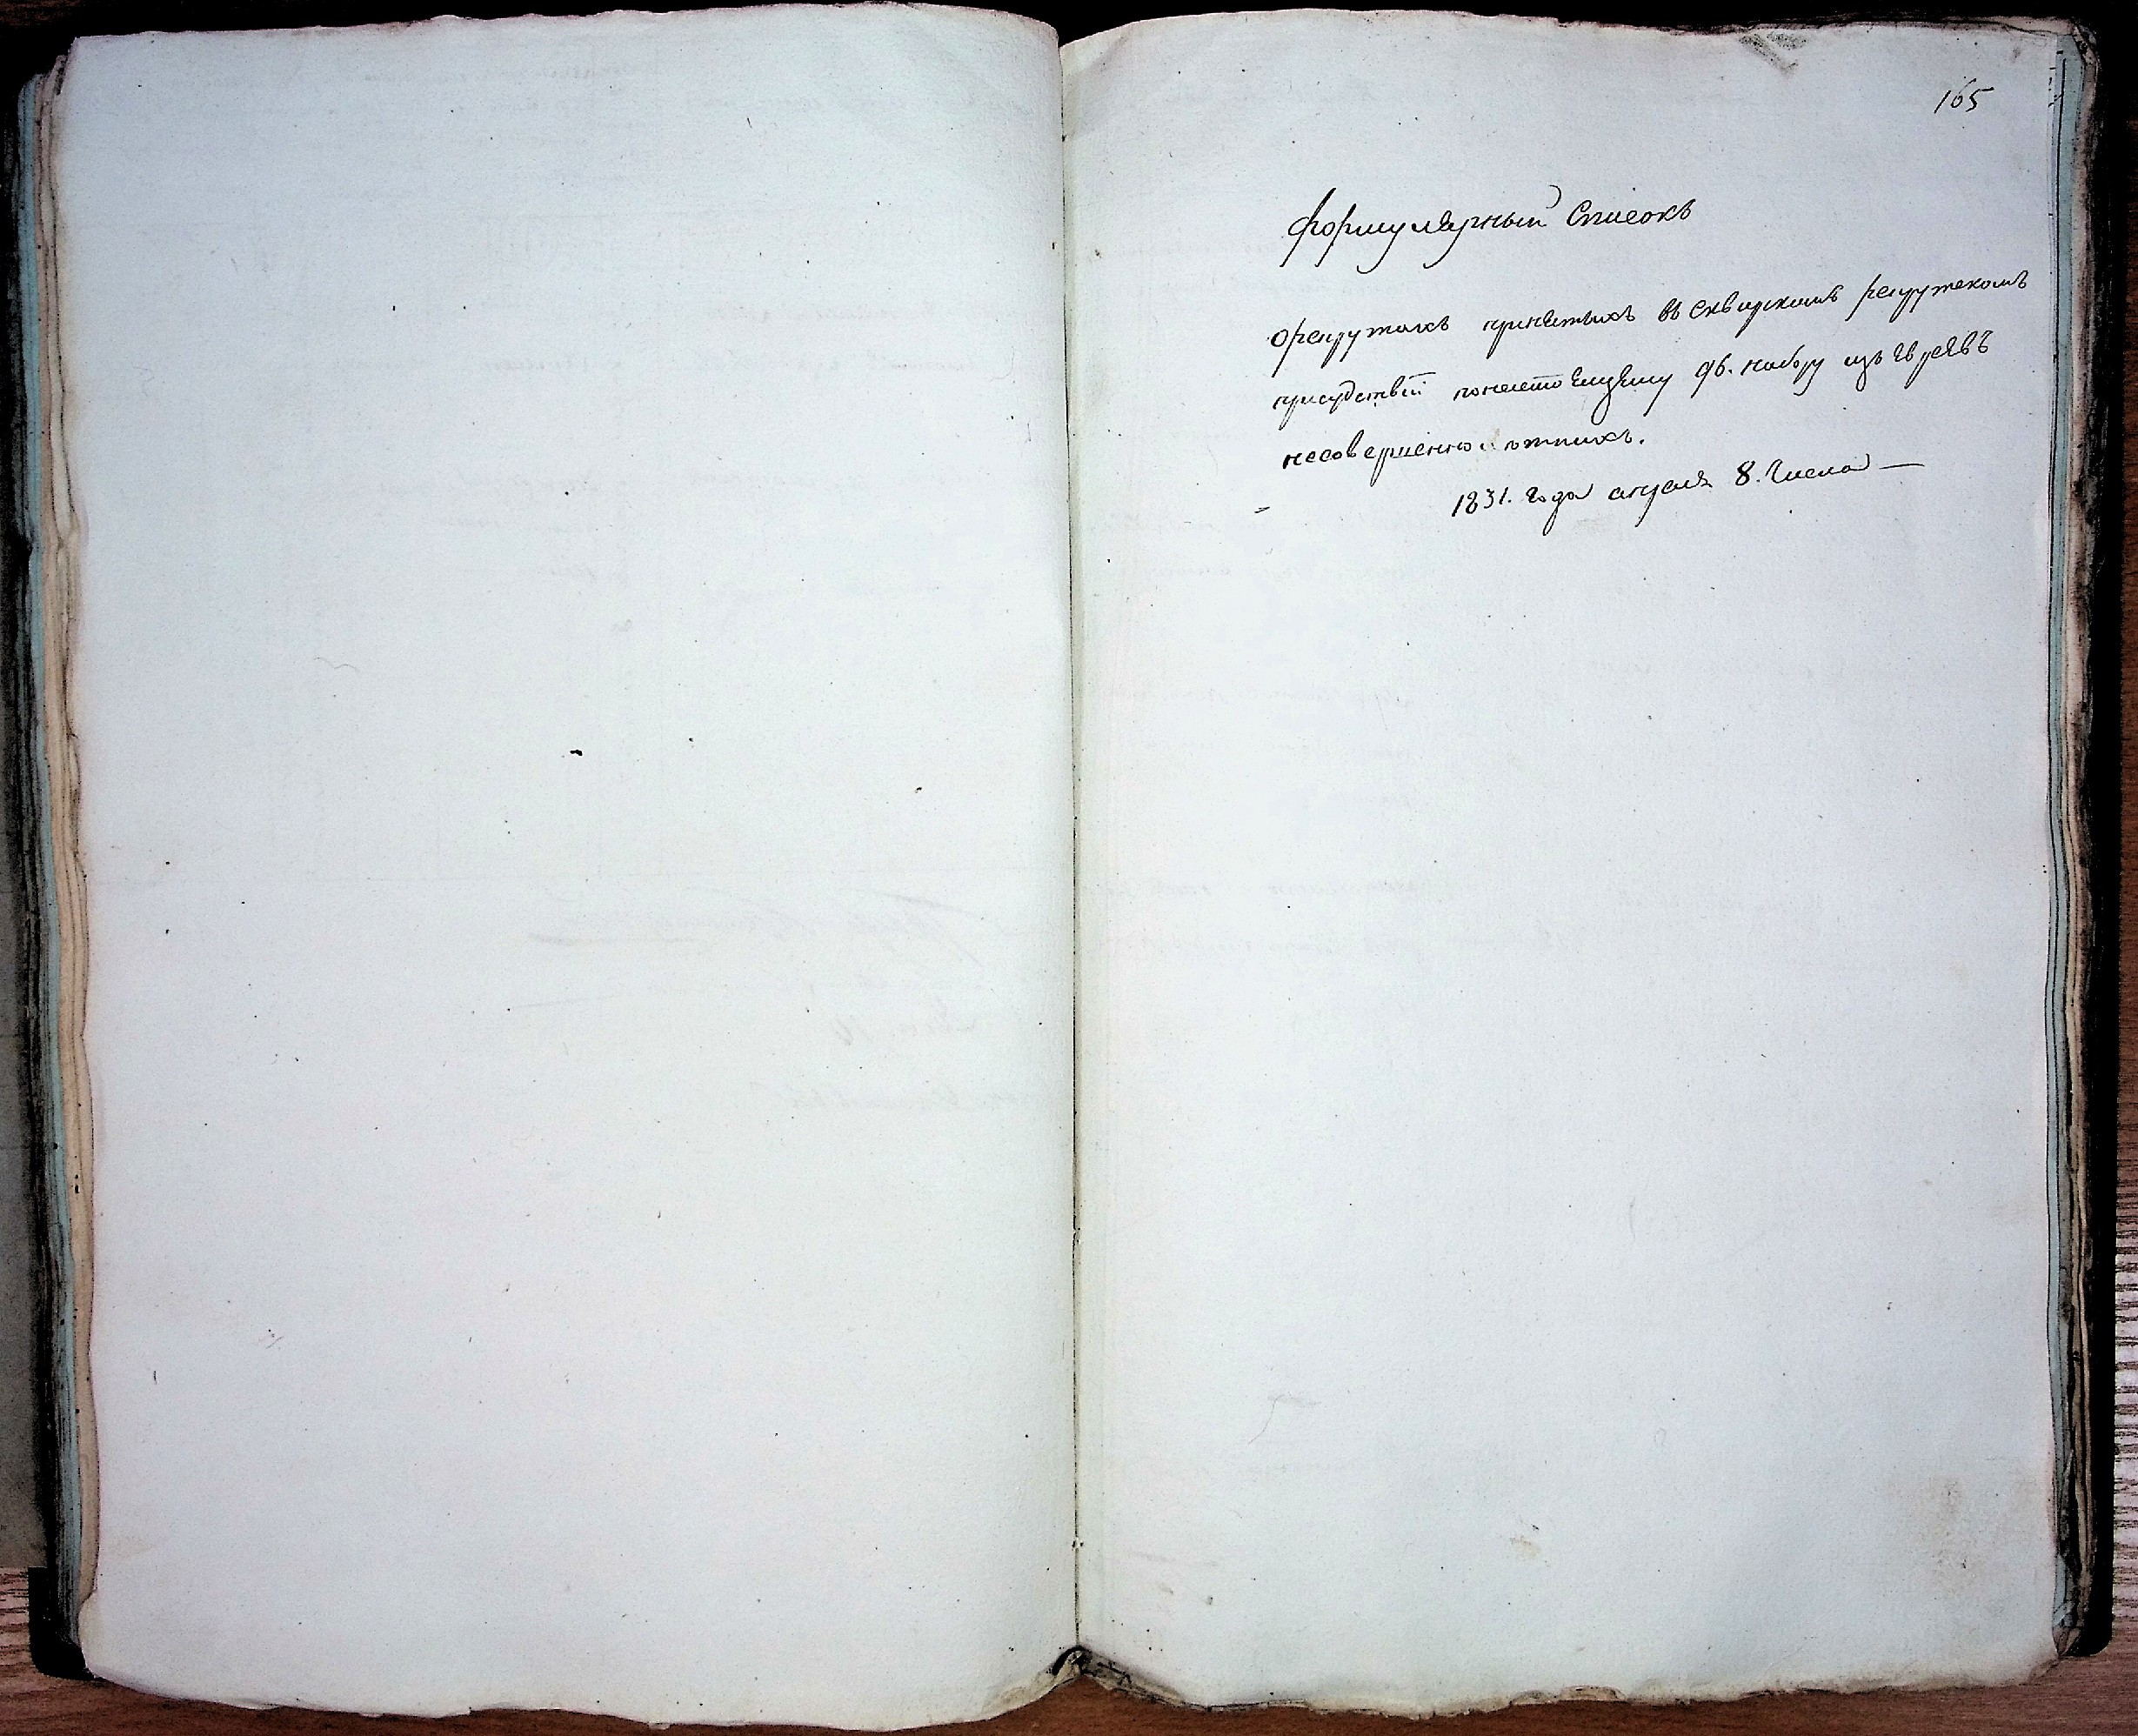 165
Формулярный Списокъ
орекрутахъ принятыхъ въ сквирскомъ рекрутскомъ
присудствіи понастоящему 96. набору изъ Евреевъ
несовершеннолѣтнихъ.
1831. Года апреля 8. Числа —